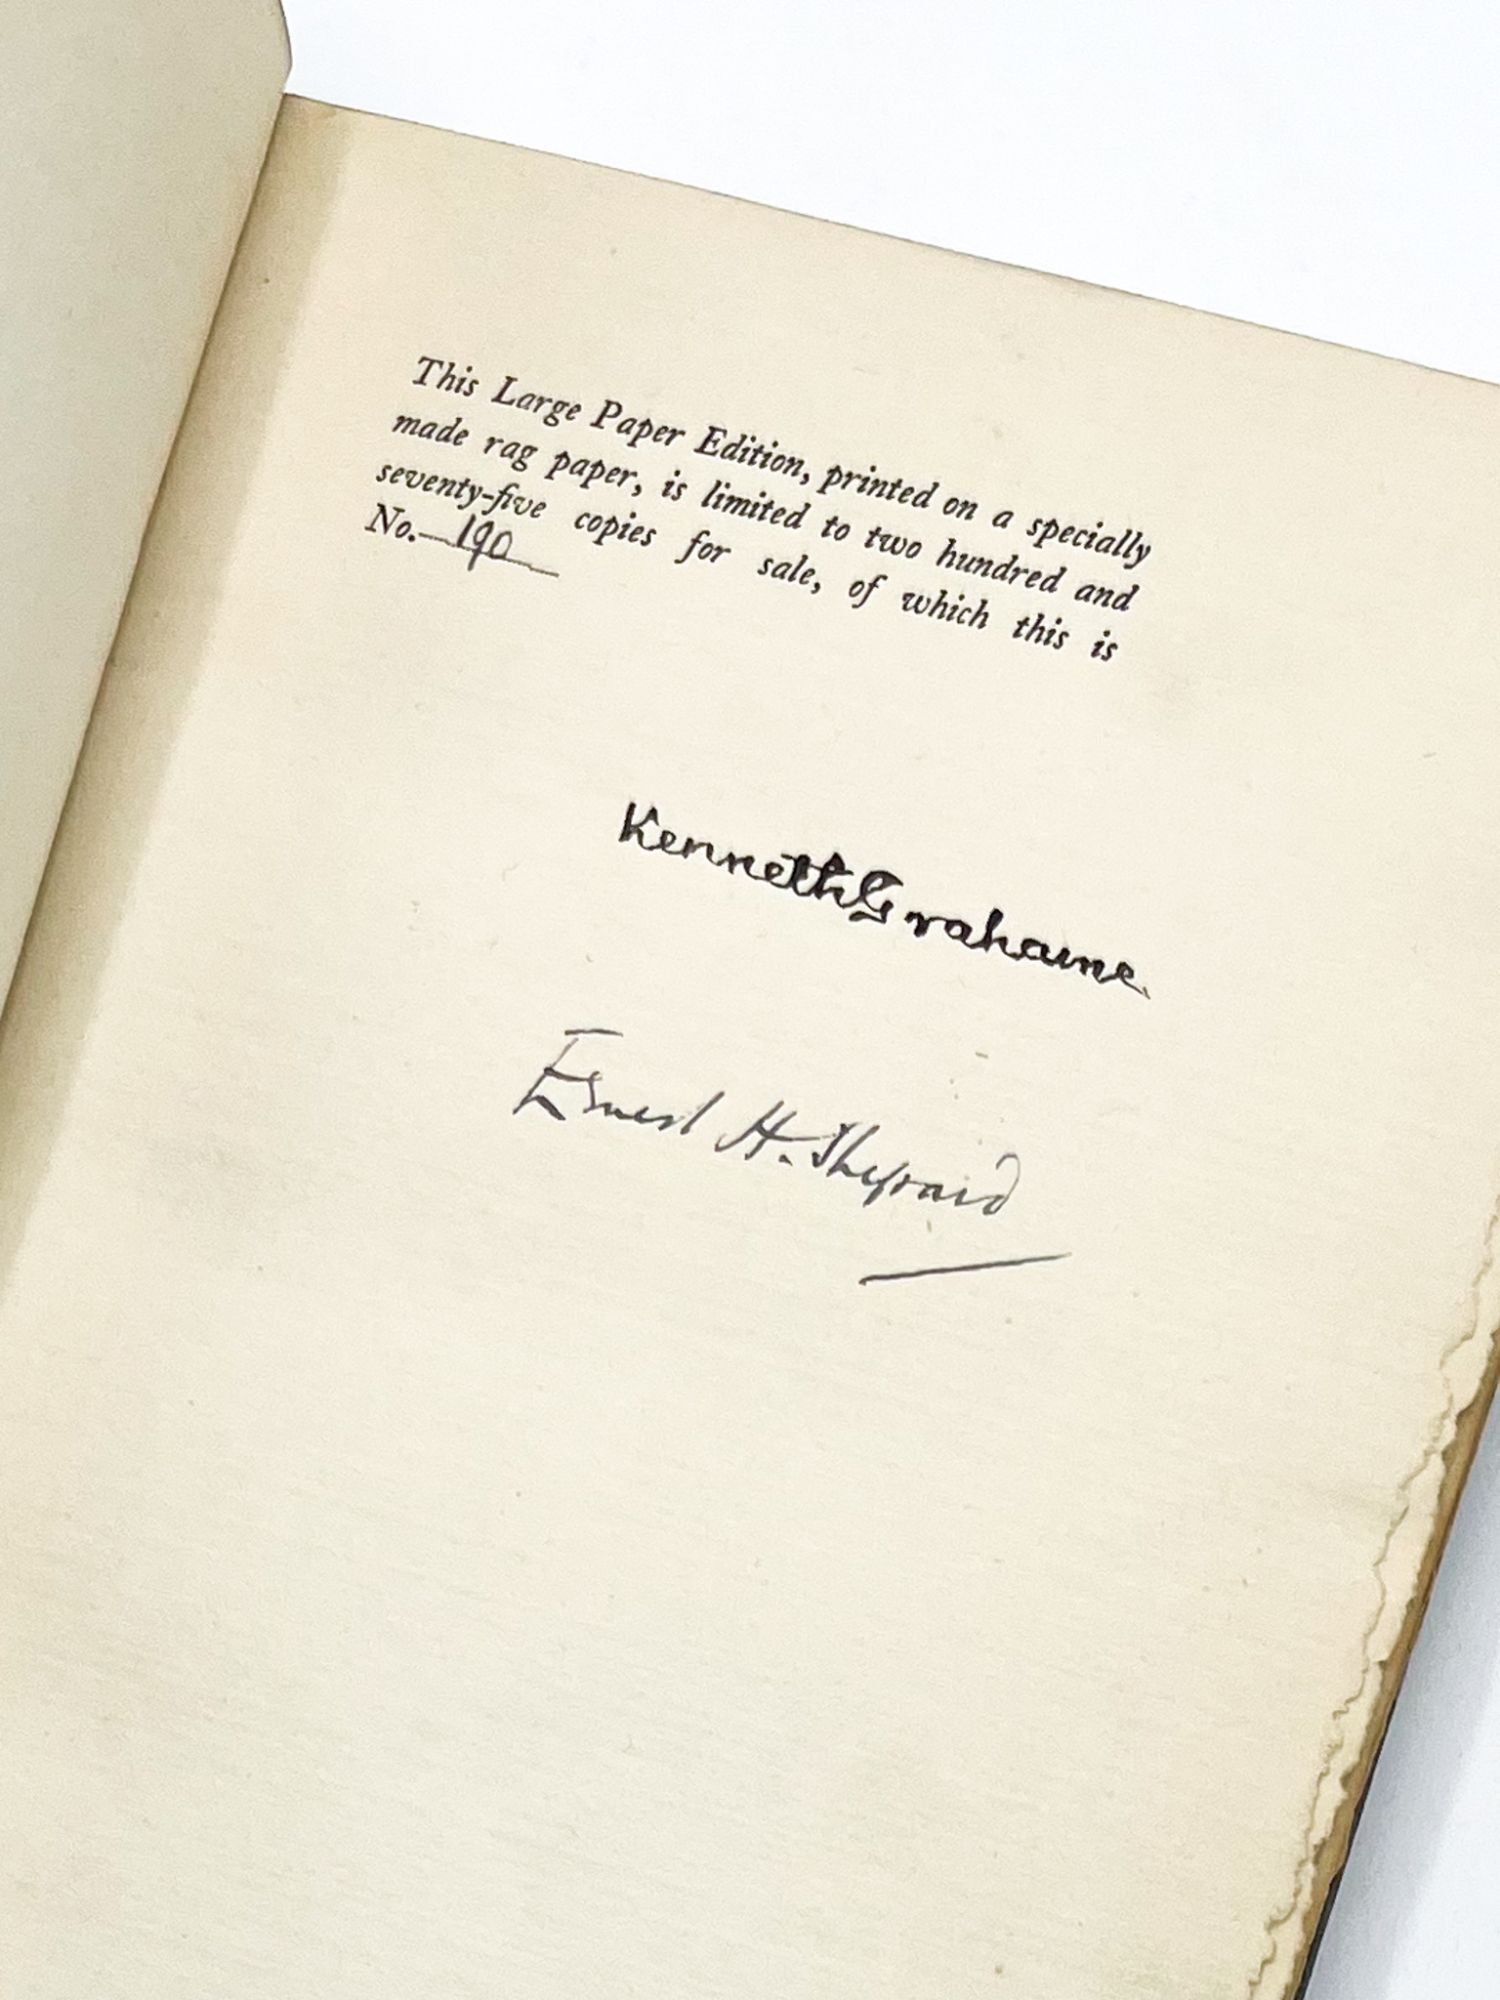 This Large Paper Edition, printed on a specially
made rag paper, is limited to two hundred and
seventy-five copies for sale, of which this is
No. 190
Kenneth Grahame
Ernest H. Shepard